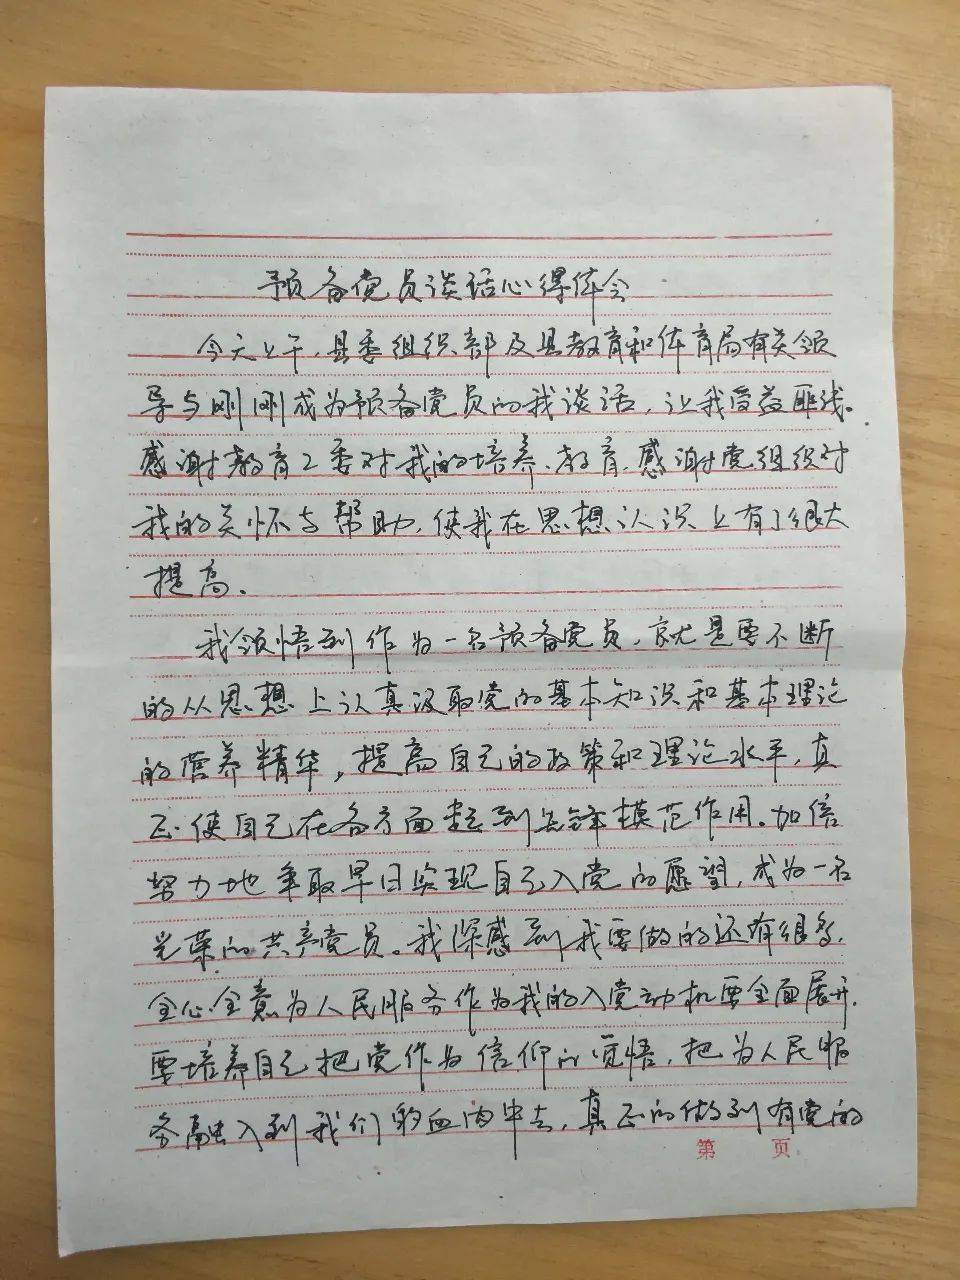 预备党员谈话心得体会
今天上午,县委组织部及县教育和体育局有关领
导与刚刚成为预备党员的我谈话,让我受益匪浅。
感谢教育工委对我的培养、教育,感谢党组织对
我的关怀与帮助,使我在思想认识上有了很大
提高。
我领悟到作为一名预备党员,就是要不断
的从思想上认真汲取党的基本知识和基本理论
的营养精华,提高自己的政策和理论水平,真
正使自己在各方面起到先锋模范作用。加倍
努力地争取早日实现自己入党的愿望,成为一名
光荣的共产党员。我深感到我要做的还有很多,
全心全意为人民服务作为我的入党动机要全面展开,
要培养自己把党作为信仰的觉悟,把为人民服
务融入到我们的血肉中去,真正的做到有党的
第 页